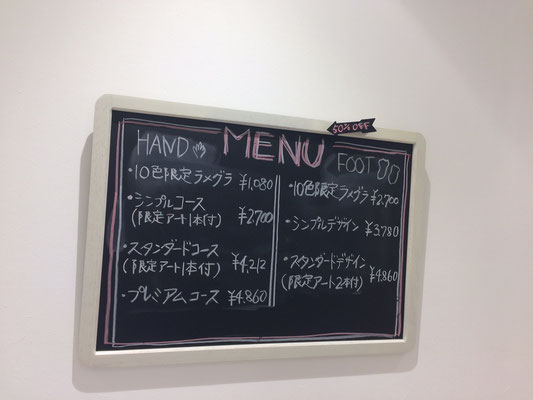 50% OFF
MENU
HAND
・10色限定ラメグラ ¥1,080
・シンプルコース
(限定アート1本付) ¥2,700
・スタンダードコース
(限定アート1本付) ¥4,212
・プレミアムコース ¥4,860
FOOT
・10色限定ラメグラ ¥2,700
・シンプルデザイン ¥3,780
・スタンダードデザイン
(限定アート2本付) ¥4,860